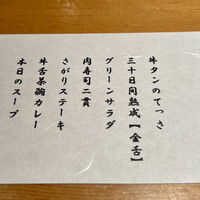 牛タンのてっさ
三十日間熟成【金舌】
グリーンサラダ
肉寿司二貫
さがりステーキ
牛舌茶碗カレー
本日のスープ